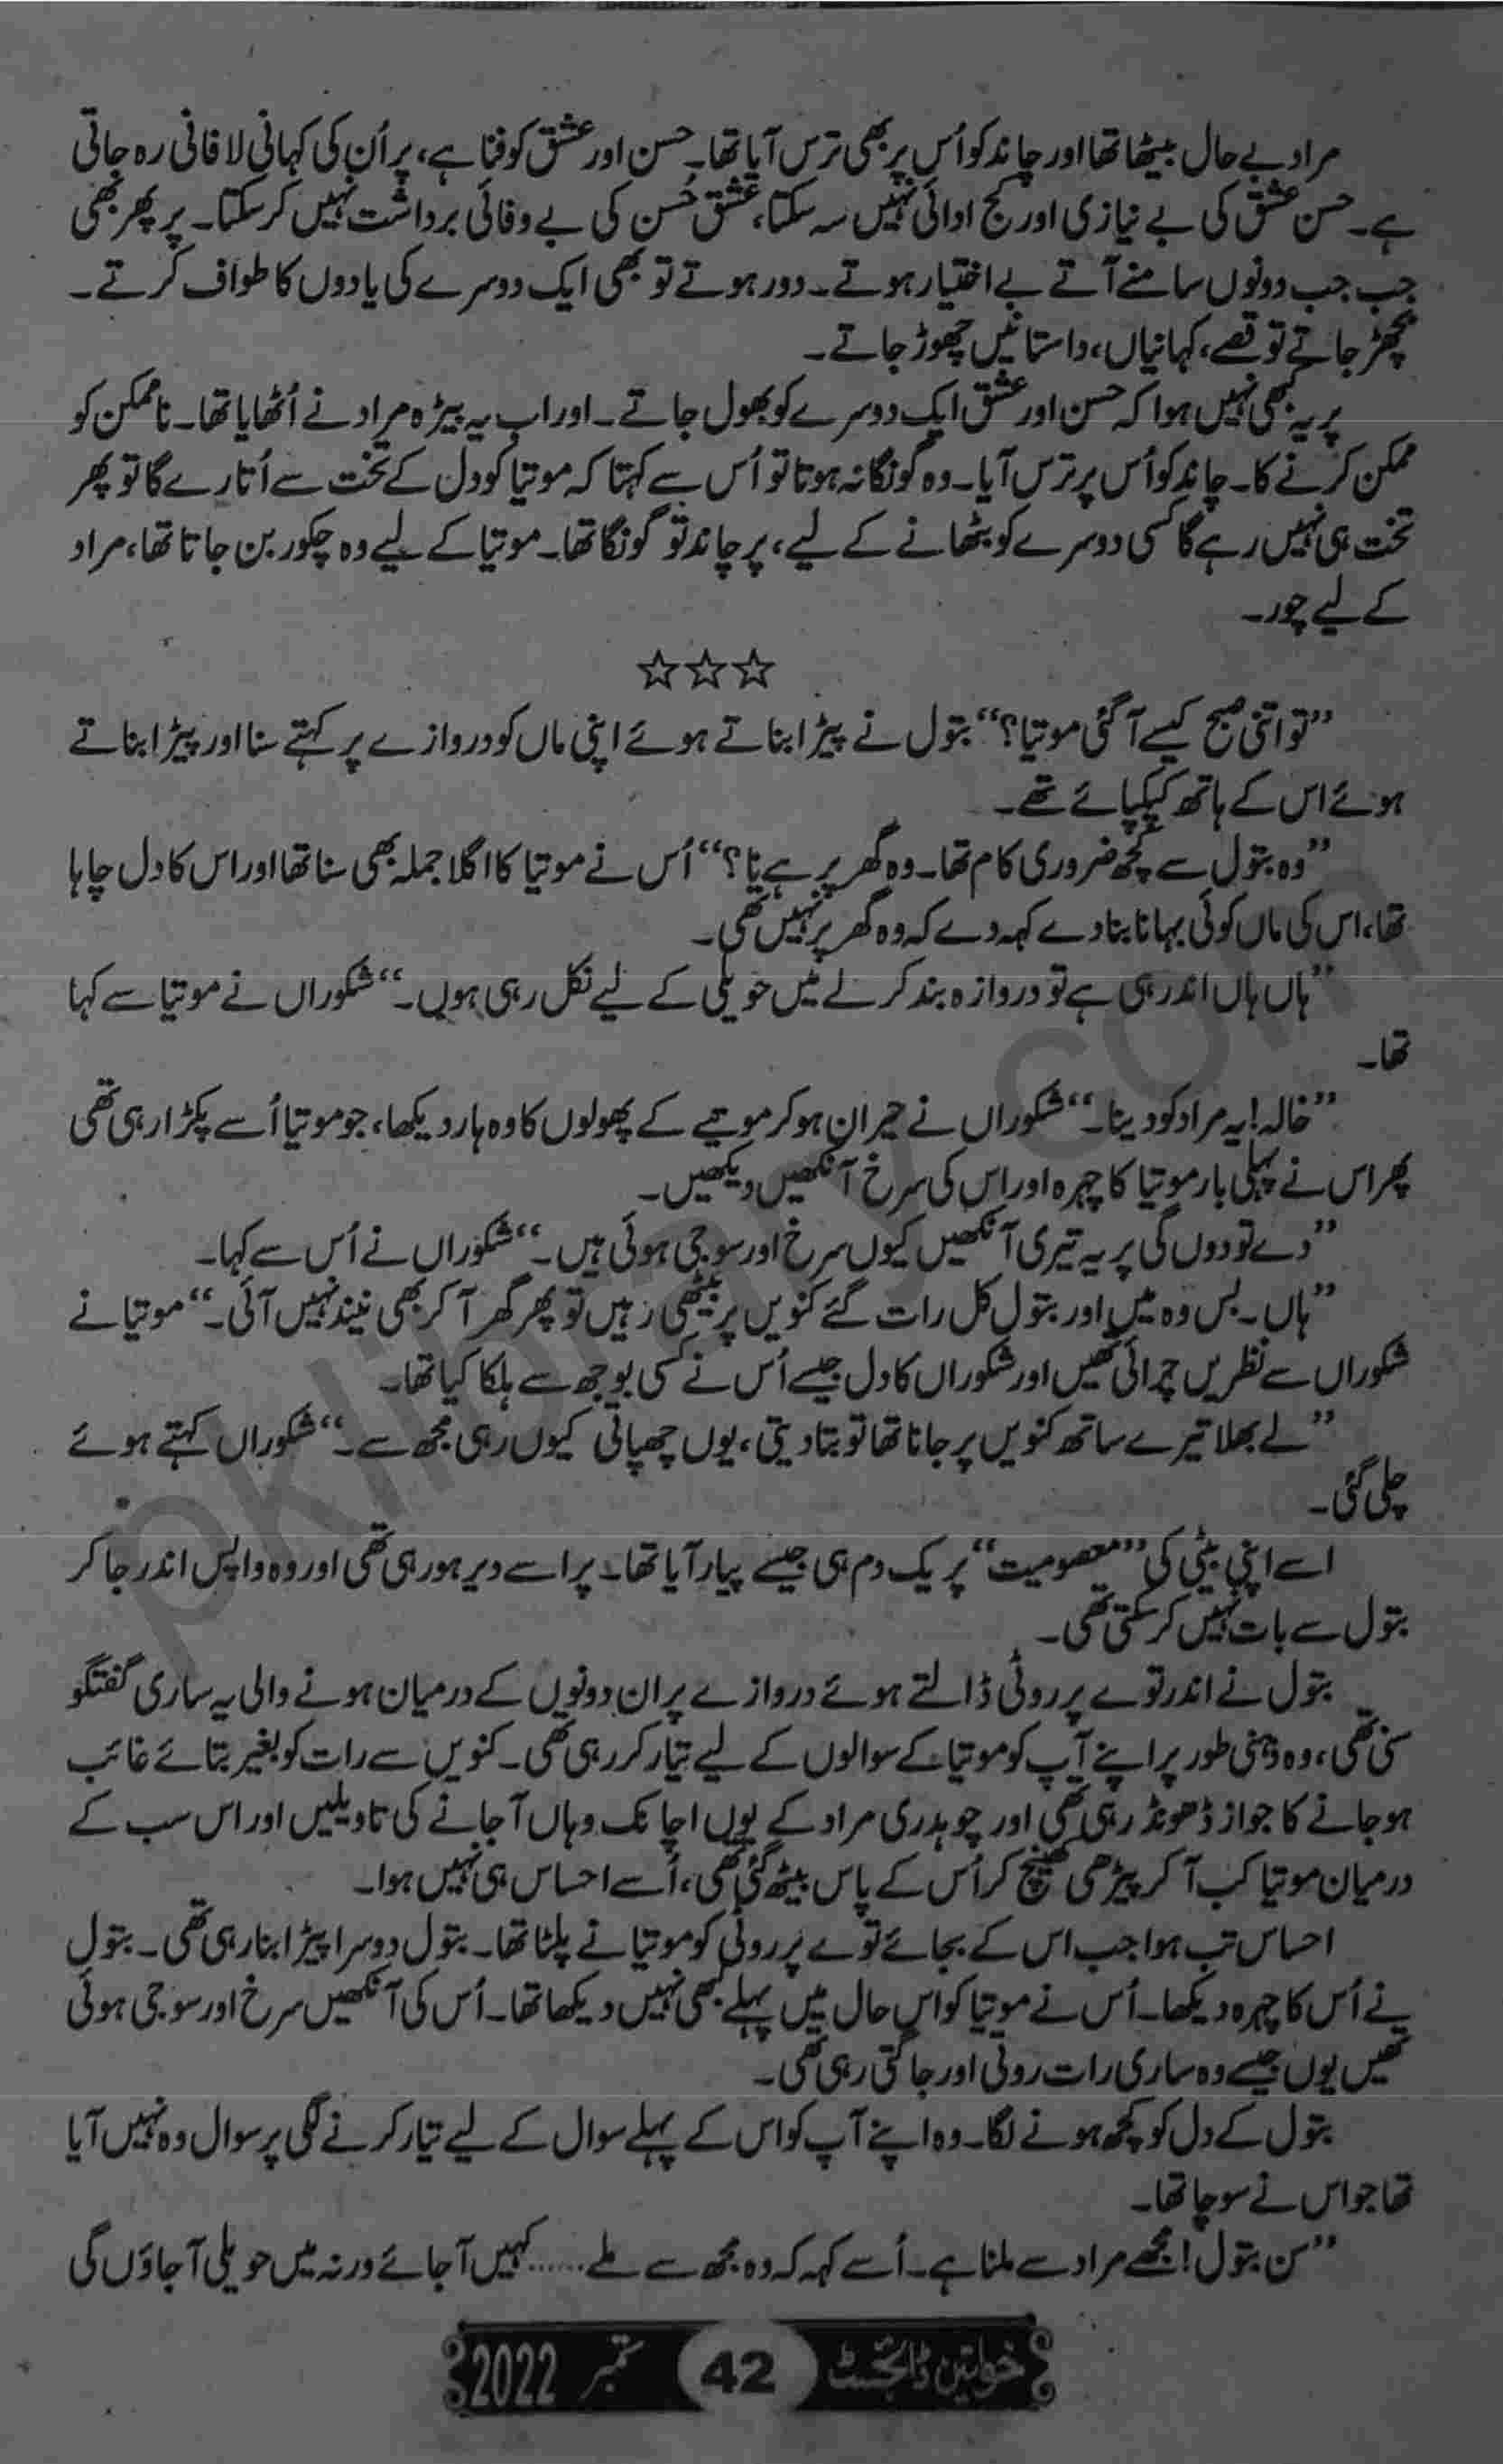 مراد بے حال بیٹھا تھا اور چاند کو اُس پر بھی ترس آیا تھا۔ حسن اور عشق کو فنا ہے، پر اُن کی کہانی لافانی رہ جاتی
ہے۔ حسن عشق کی بے نیازی اور کج ادائی نہیں سہ سکتا، عشق حُسن کی بے وفائی برداشت نہیں کر سکتا۔ پر پھر بھی
جب جب دونوں سامنے آتے بے اختیار ہوتے۔ دور ہوتے تو بھی ایک دوسرے کی یادوں کا طواف کرتے۔
بچھڑ جاتے تو قصے، کہانیاں، داستانیں چھوڑ جاتے۔
پر یہ کبھی نہیں ہوا کہ حسن اور عشق ایک دوسرے کو بھول جاتے۔ اور اب یہ بیڑہ مراد نے اُٹھایا تھا۔ ناممکن کو
ممکن کرنے کا۔ چاند کو اُس پر ترس آیا۔ وہ گونگا نہ ہوتا تو اُس سے کہتا کہ موتیا کو دل کے تخت سے اُتارے گا تو پھر
تخت ہی نہیں رہے گا کسی دوسرے کو بٹھانے کے لیے، پر چاند تو گونگا تھا۔ موتیا کے لیے وہ چکور بن جاتا تھا، مراد
کے لیے چور۔
☆☆☆
”تو اتنی صبح کیسے آ گئی موتیا؟“ بتول نے پیڑا بناتے ہوئے اپنی ماں کو دروازے پر کہتے سنا اور پیڑا بناتے
ہوئے اس کے ہاتھ کپکپائے تھے۔
”وہ بتول سے کچھ ضروری کام تھا۔ وہ گھر پر ہے نا؟“ اُس نے موتیا کا اگلا جملہ بھی سنا تھا اور اس کا دل چاہا
تھا، اس کی ماں کوئی بہانا بنا دے کہہ دے کہ وہ گھر پر نہیں تھی۔
”ہاں ہاں اندر ہی ہے تو دروازہ بند کر لے میں حویلی کے لیے نکل رہی ہوں۔“ شکوراں نے موتیا سے کہا
تھا۔
”خالہ! یہ مراد کو دینا۔“ شکوراں نے حیران ہو کر موتیے کے پھولوں کا وہ ہار دیکھا، جو موتیا اُسے پکڑا رہی تھی
پھر اس نے پہلی بار موتیا کا چہرہ اور اس کی سرخ آنکھیں دیکھیں۔
”دے تو دوں گی پر یہ تیری آنکھیں کیوں سرخ اور سوجی ہوئی ہیں۔“ شکوراں نے اُس سے کہا۔
”ہاں۔ بس وہ میں اور بتول کل رات گئے کنویں پر بیٹھی رہیں تو پھر گھر آ کر بھی نیند نہیں آئی۔“ موتیا نے
شکوراں سے نظریں چرائی تھیں اور شکوراں کا دل جیسے اُس نے کسی بوجھ سے ہلکا کیا تھا۔
”لے بھلا تیرے ساتھ کنویں پر جانا تھا تو بتا دیتی، یوں چھپاتی کیوں رہی مجھ سے۔“ شکوراں کہتے ہوئے
چلی گئی۔
اسے اپنی بیٹی کی ”معصومیت“ پر یک دم ہی جیسے پیار آیا تھا۔ پر اسے دیر ہو رہی تھی اور وہ واپس اندر جا کر
بتول سے بات نہیں کر سکتی تھی۔
بتول نے اندر توے پر روٹی ڈالتے ہوئے دروازے پر ان دونوں کے درمیان ہونے والی یہ ساری گفتگو
سنی تھی، وہ ذہنی طور پر اپنے آپ کو موتیا کے سوالوں کے لیے تیار کر رہی تھی۔ کنویں سے رات کو بغیر بتائے غائب
ہو جانے کا جواز ڈھونڈ رہی تھی اور چوہدری مراد کے یوں اچانک وہاں آ جانے کی تاویلیں اور اس سب کے
درمیان موتیا کب آ کر پیڑھی کھینچ کر اُس کے پاس بیٹھ گئی تھی، اُسے احساس ہی نہیں ہوا۔
احساس تب ہوا جب اس کے بجائے توے پر روٹی کو موتیا نے پلٹا تھا۔ بتول دوسرا پیڑا بنا رہی تھی۔ بتول
نے اُس کا چہرہ دیکھا۔ اُس نے موتیا کو اس حال میں پہلے کبھی نہیں دیکھا تھا۔ اُس کی آنکھیں سرخ اور سوجی ہوئی
تھیں یوں جیسے وہ ساری رات روتی اور جاگتی رہی تھی۔
بتول کے دل کو کچھ ہونے لگا۔ وہ اپنے آپ کو اس کے پہلے سوال کے لیے تیار کرنے لگی پر سوال وہ نہیں آیا
تھا جو اس نے سوچا تھا۔
”سن بتول! مجھے مراد سے ملنا ہے۔ اُسے کہہ کہ وہ مجھ سے ملے...... کہیں آ جائے ورنہ میں حویلی آ جاؤں گی
خواتین ڈائجسٹ 42 ستمبر 2022
pklibrary.com